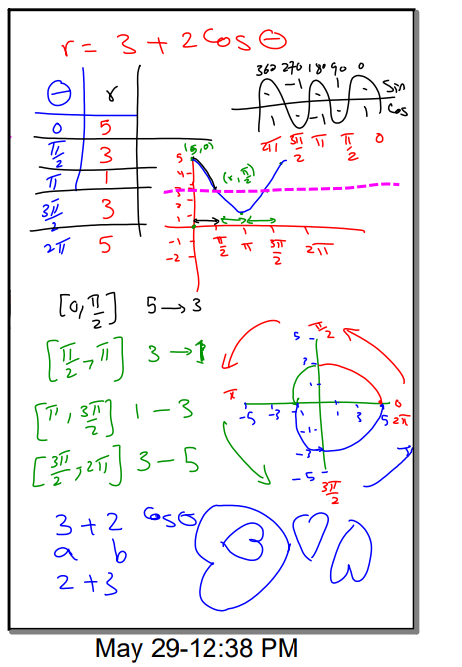 r = 3 + 2 cos θ
θ r
0 5
π/2 3
π 1
3π/2 3
2π 5
360 270 180 90 0
- -1 - 1 Sin
- - -1 - 1 Cos
3π/2 π π/2 0
(5,0)
5
4
3
2
1
-1
-2
π/2 π 3π/2 2π
[0, π/2] 5 → 3
[π/2, π] 3 → 1
[π, 3π/2] 1 - 3
[3π/2, 2π] 3 - 5
π/2
5
π 0
-5 -3 -1 1 3 5 2π
-1
-3
-5
3π/2
3 + 2 cos θ
a b
2 + 3
May 29-12:38 PM